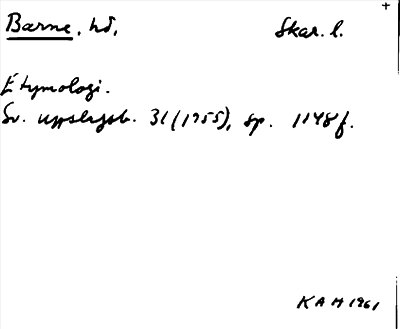 Barne, hd, Skar. l.
Etymologi.
Sv. uppslagsb. 31 (1955), sp. 1148 f.
KAH 1961